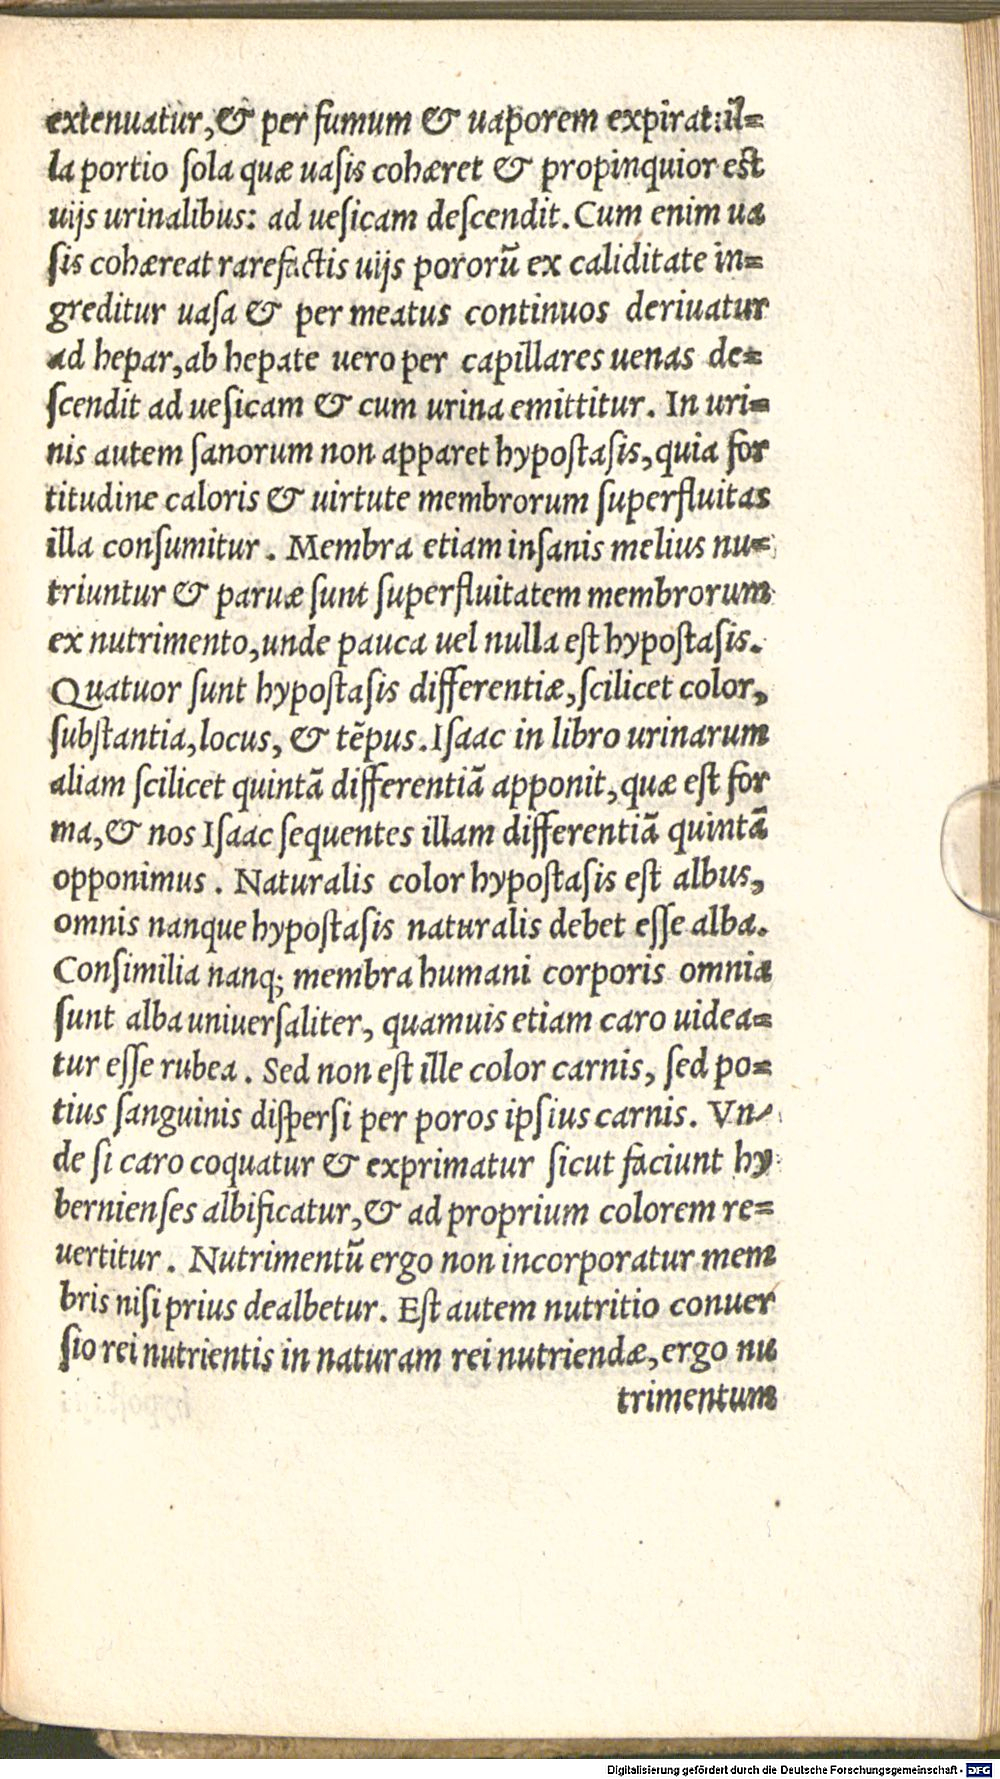 extenuatur, & per fumum & uaporem expirat: il=
la portio sola quæ uasis cohæret & propinquior est
uijs urinalibus: ad uesicam descendit. Cum enim ua
sis cohæreat rarefactis uijs pororũ ex caliditate in=
greditur uasa & per meatus continuos deriuatur
ad hepar, ab hepate uero per capillares uenas de=
scendit ad uesicam & cum urina emittitur. In uri=
nis autem sanorum non apparet hypostasis, quia for
titudine caloris & uirtute membrorum superfluitas
illa consumitur. Membra etiam in sanis melius nu=
triuntur & paruæ sunt superfluitatem membrorum
ex nutrimento, unde pauca uel nulla est hypostasis.
Quatuor sunt hypostasis differentiæ, scilicet color,
substantia, locus, & tẽpus. Isaac in libro urinarum
aliam scilicet quintã differentiã apponit, quæ est for
ma, & nos Isaac sequentes illam differentiã quintã
opponimus. Naturalis color hypostasis est albus,
omnis nanque hypostasis naturalis debet esse alba.
Consimilia nanq; membra humani corporis omnia
sunt alba uniuersaliter, quamuis etiam caro uidea=
tur esse rubea. Sed non est ille color carnis, sed po=
tius sanguinis dispersi per poros ipsius carnis. Vn=
de si caro coquatur & exprimatur sicut faciunt hy
bernienses albificatur, & ad proprium colorem re=
uertitur. Nutrimentũ ergo non incorporatur mem
bris nisi prius dealbetur. Est autem nutritio conuer
sio rei nutrientis in naturam rei nutriendæ, ergo nu
trimentum
Digitalisierung gefördert durch die Deutsche Forschungsgemeinschaft - DFG